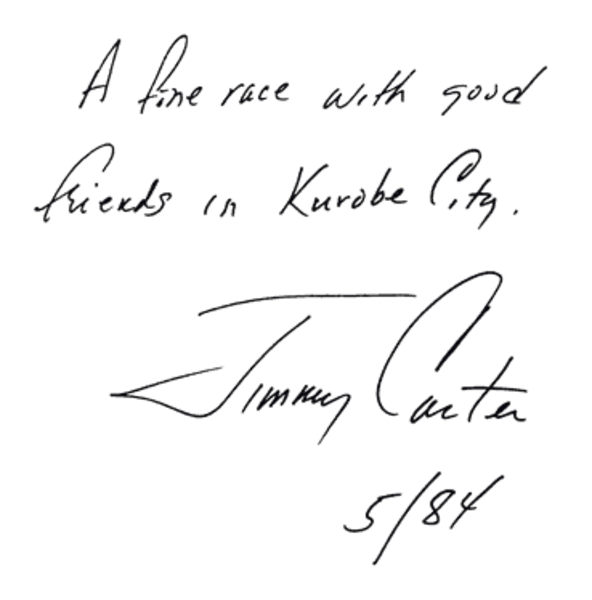 A fine race with good
friends in Kurobe City.
Jimmy Carter
5/84